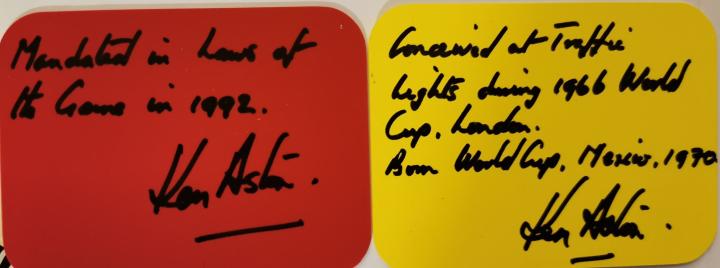 Mandated in Laws of
the Game in 1992.
Ken Aston.
Conceived at Traffic
Lights during 1966 World
Cup, London.
Born World Cup, Mexico, 1970
Ken Aston.